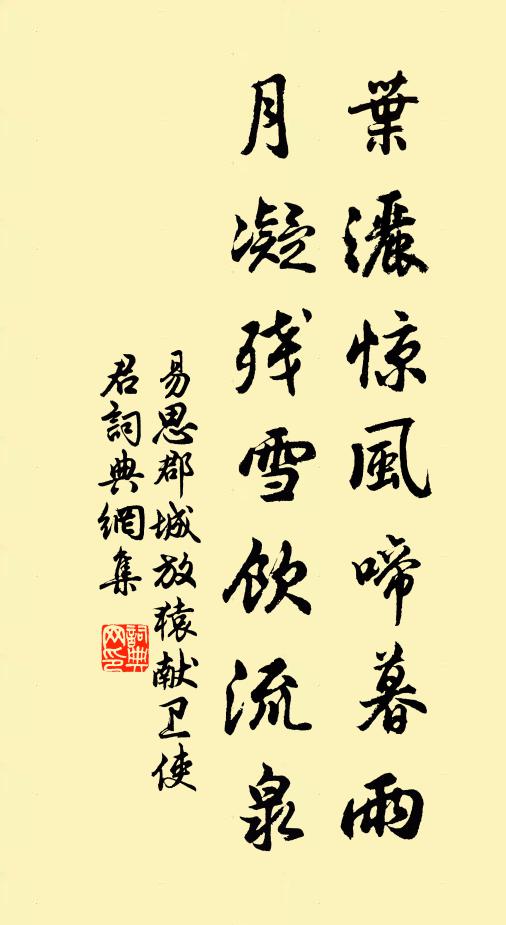 葉灑惊風啼暮雨
月凝残雪飲流泉
易思郡城放猿献卫使
君詞典網集
詞典網印